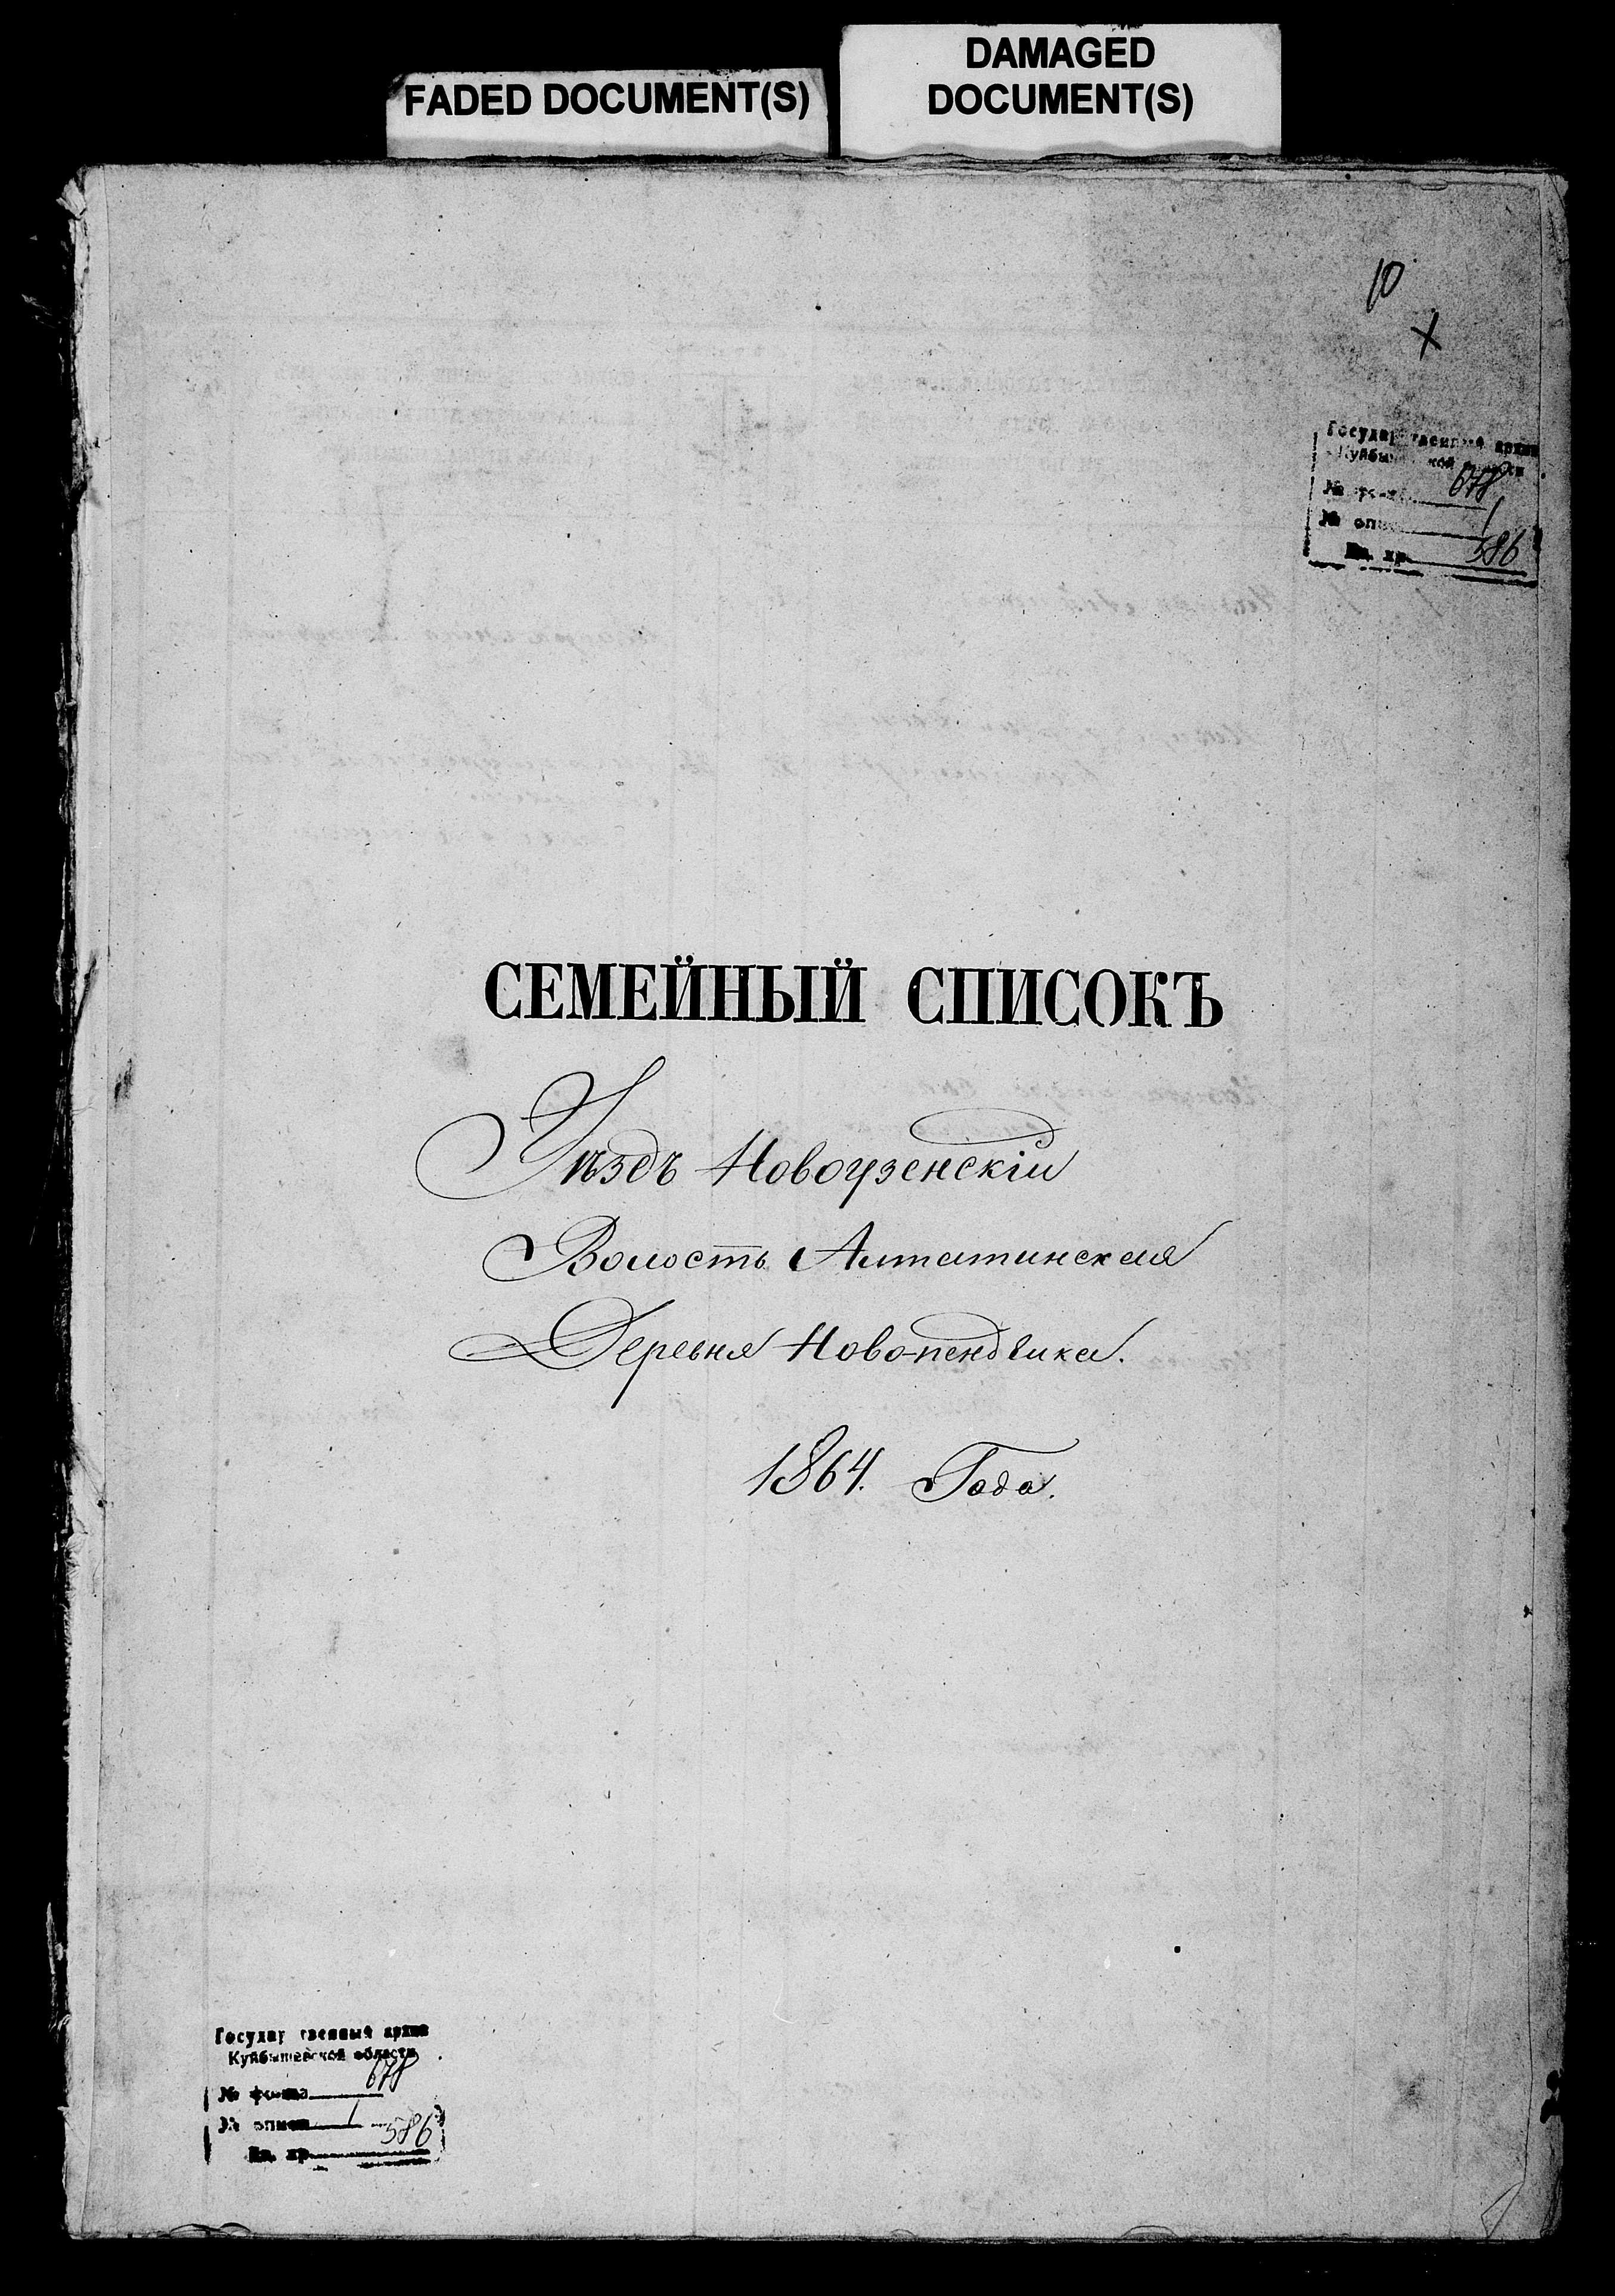 FADED DOCUMENT(S)
DAMAGED
DOCUMENT(S)
10
X
Государственный архив
Куйбышевской области
№ фонда 678
№ описи 1
Ед. хр. 586
СЕМЕЙНЫЙ СПИСОКЪ
Уѣздъ Новоузенскій
Волость Алтатинская
Деревня
1864. Года.
Государственный архив
Куйбышевской области
№ фонда 678
№ описи 1
Ед. хр. 586